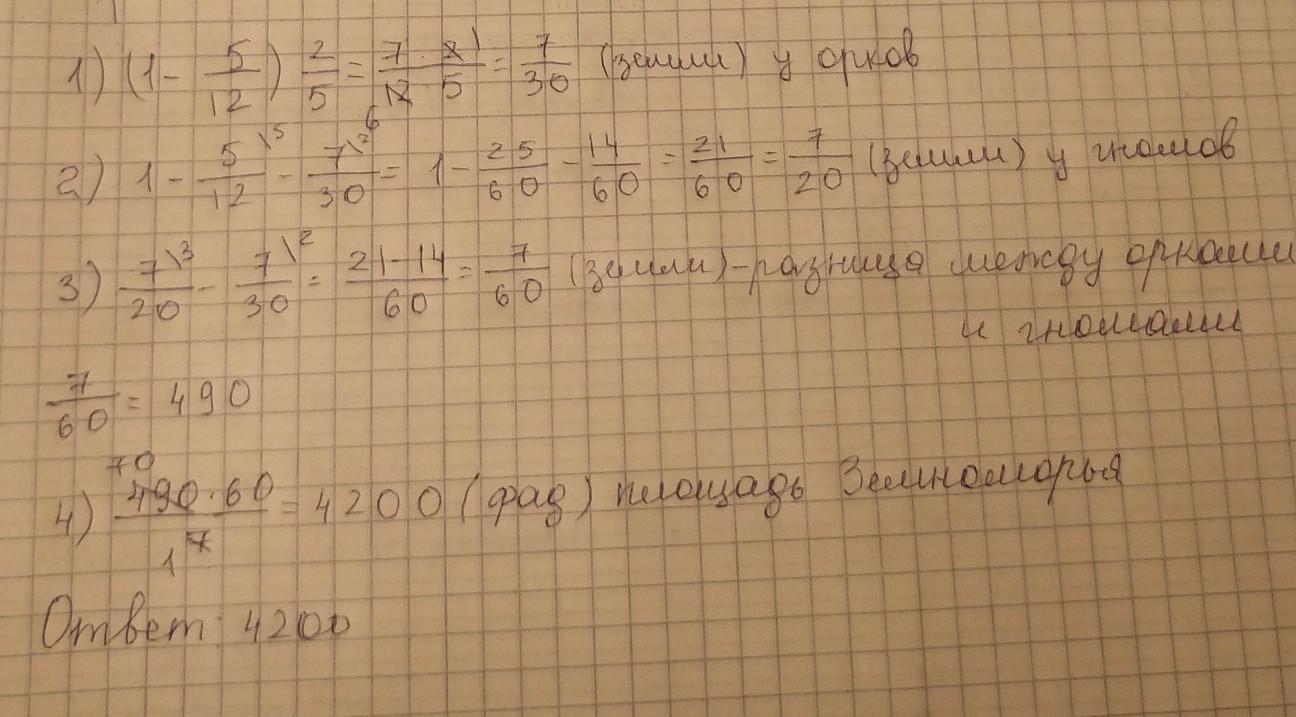 1) (1 - 5/12) 2/5 = 7·2/12·5 = 7/30 (земли) у орков
2) 1 - 5/12 \5 - 7/30 \2 = 1 - 25/60 - 14/60 = 21/60 = 7/20 (земли) у гномов
3) 7/20 \3 - 7/30 \2 = 21-14/60 = 7/60 (земли) - разница между орками
и гномами
7/60 = 490
4) 490·60/7 = 4200 (фад) площадь Земноморья
Ответ: 4200